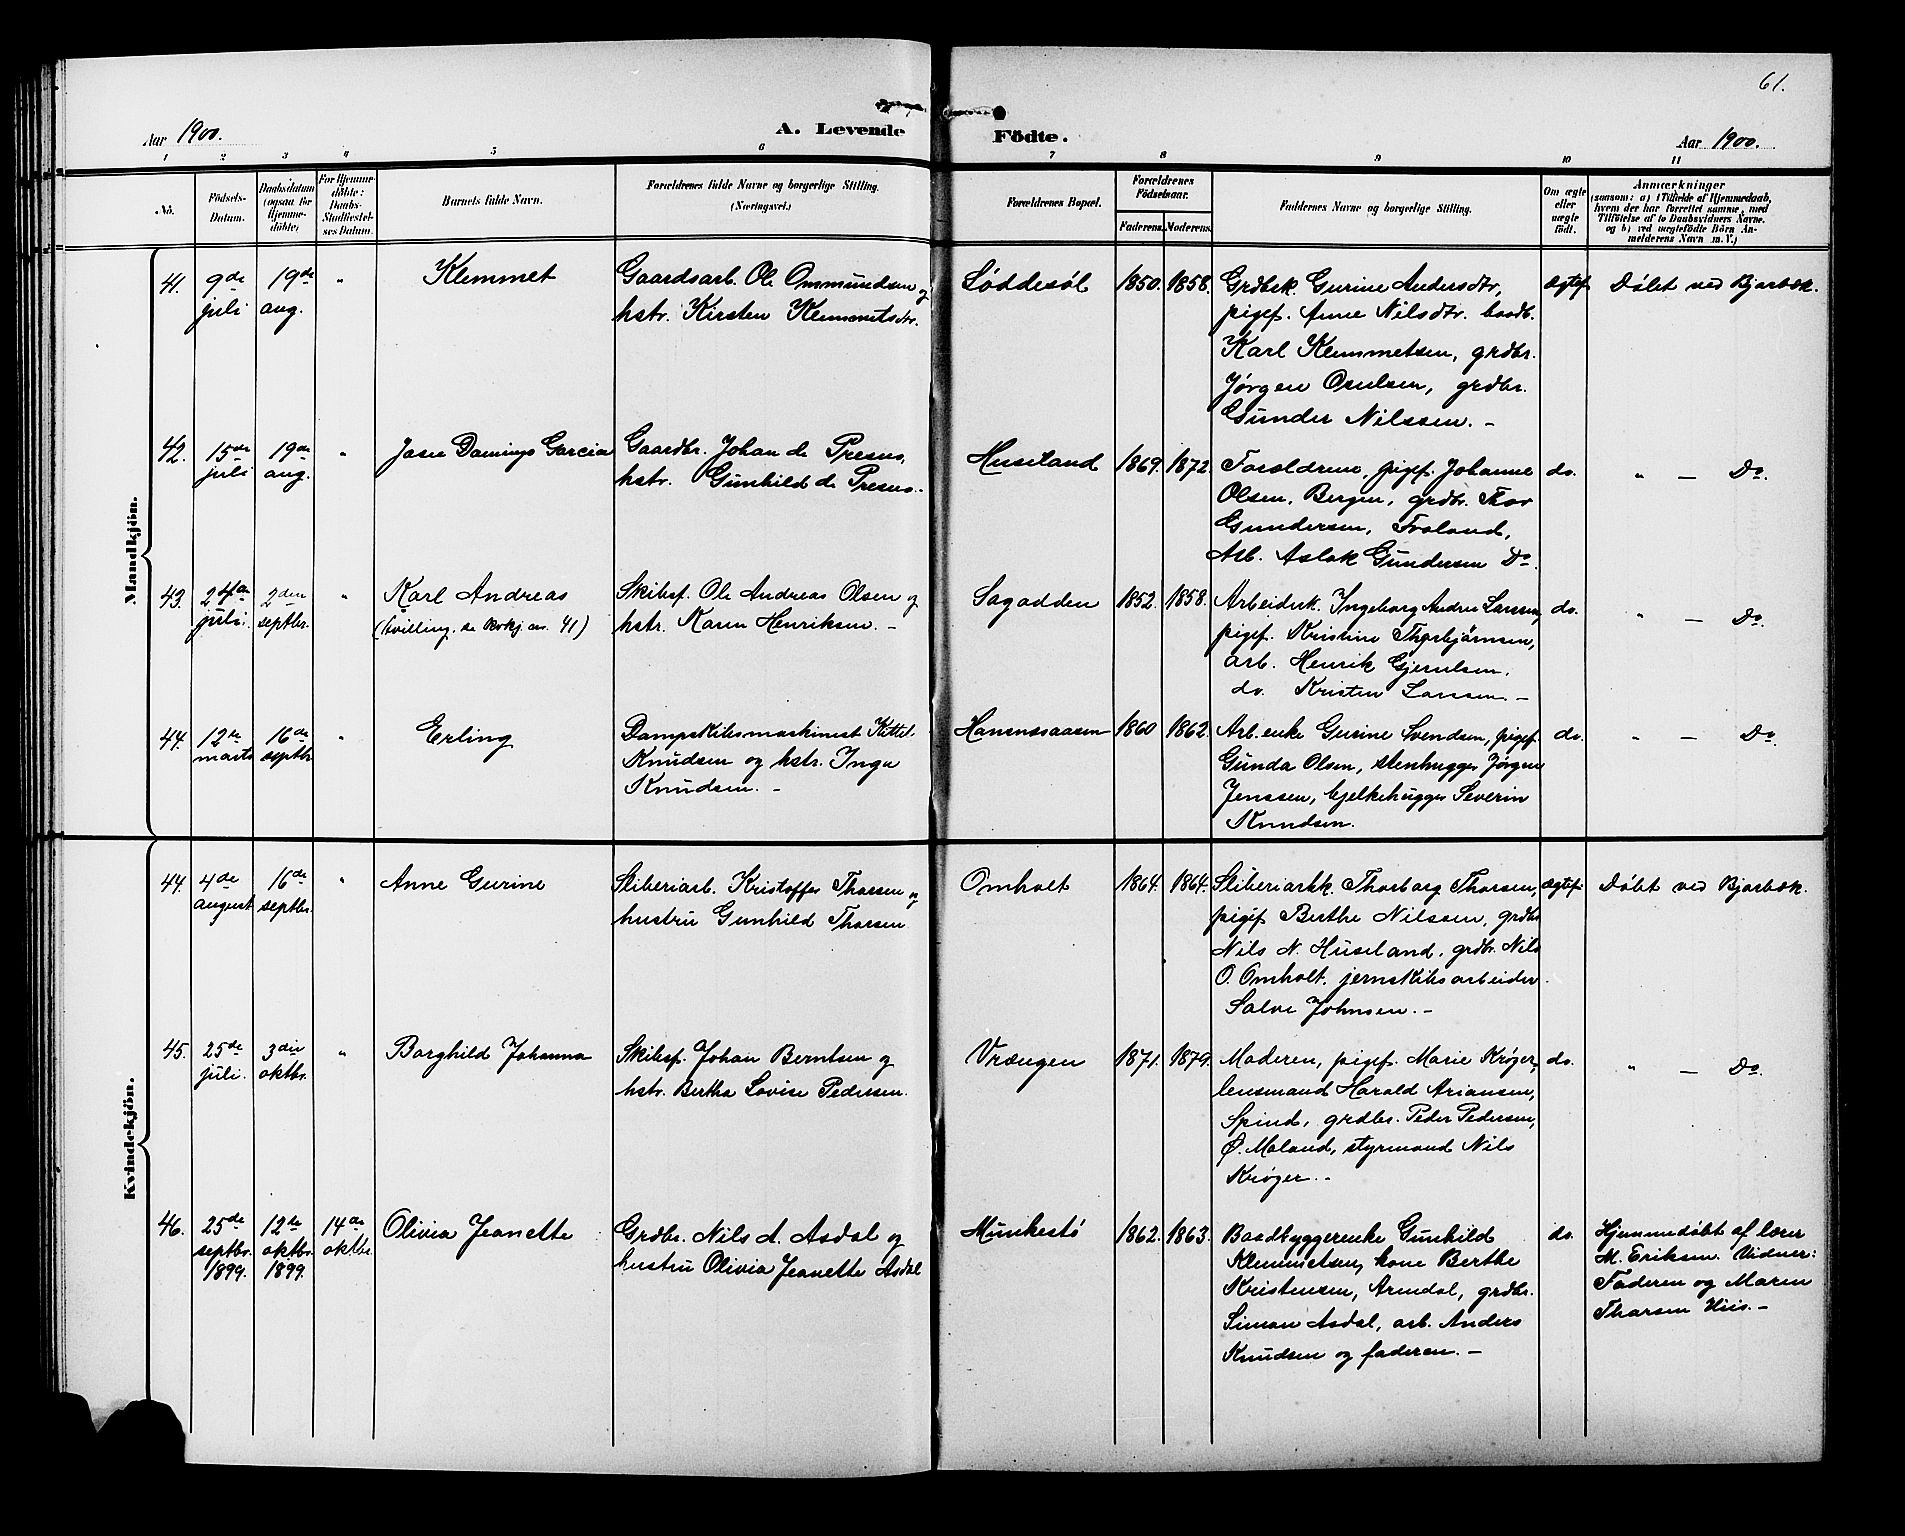 61.
Aar 1900.
A. Levende
Födte.
Aar 1900.
1 2 3 4 5 6 7 8 9 10 11
No.
Födsels-
Datum.
Daabsdatum
(ogsaa for
Hjemme-
döbte)
For Hjemme-
döbte:
Daabs-
Stadfæstel-
ses Datum.
Barnets fulde Navn.
Forældrenes fulde Navne og borgerlige Stilling.
(Næringsvei.)
Forældrenes Bopæl.
Forældrenes
Födselsaar.
Faderens. Moderens.
Faddernes Navne og borgerlige Stilling.
Om ægte
eller
uægte
födt.
Anmærkninger
(saasom: a) i Tilfælde af Hjemmedaab,
hvem der har forrettet samme, med
Tilföielse af to Daabsvidners Navne.
og b) ved uægtefödte Börn An-
melderens Navn m. V.)
Mandkjön.
41.
9de
juli
19de
aug.
"
Klemmet
Gaardsarb. Ole Ommundsen og
hstr. Kirsten Klemmetsdtr.
Løddesøl
1850. 1858.
Grdbek. Gurine Andersdtr,
pigef. Anne Nilsdtr. baadb.
Karl Klemmetsen, grdbr.
Jørgen Osulsen, grdbr.
Gunder Nilssen. -
Ægtef.
Døbt ved Bjarbæk.
42.
15de
juli
19de
aug.
"
Garcia
Gaardbr. Johan de Presno,
hstr. Gunhild de Presno.
Huseland
1869. 1872.
Forældrene, pigef. Johanne
Olsen, Bergen, grdbr. Thor
Gundersen, Froland,
Arb. Aslak Gundersen Do.
do.
" — Do.
43.
24de
juli.
2den
septbr.
"
Karl Andreas
(tvilling, se kvkj nr. 41)
Skibsf. Ole Andreas Olsen og
hstr. Karen Henriksen. -
Sagodden
1852. 1858.
Arbeidsk. Ingeborg Andrea Larsen,
pigef. Kristine Thorbjørnsen,
arb. Henrik Gjerulsen.
do. Kristen Larssen. -
do.
" — Do.
44.
12te
marts
16de
septbr.
"
Erling
Dampskibsmaskinist Kittel
Knudsen og hstr. Inga
Knudsen. -
1860 1862.
Arb.enke Gurine Svendsen, pigef.
Gunda Olsen, stenhugger Jørgen
Jenssen, bjelkehugger Severin
Knudsen.
do.
" — Do.
Kvindekjön.
44.
4de
august
16de
septbr.
"
Anne Gurine
Sliberiarb. Kristoffer Thorsen og
hustru Gunhild Thorsen
Omholt
1864. 1864.
Sliberiarbk. Thorborg Thorsen,
pigef. Berthe Nilssen, grdbr
Nils N. Huseland, grdbr. Nils
O. Omholt. jernskibsarbeider
Salve Johnsen. -
Ægtef.
Døbt ved Bjarbæk.
45.
25de
juli.
3die
oktbr.
"
Borghild Johanna
Skibsf. Johan Berntsen og
hstr. Bertha Lovise Pedersen.
Vrængen
1871. 1879.
Moderen, pigef. Marie Krøger,
lensmand Harald Ariansen,
Spind, grdbr. Peder Pedersen,
Ø. Moland, styrmand Nils
Krøger. -
do.
" — Do.
46.
25de
septbr.
1899.
12te
oktbr.
1899.
14de
oktbr.
Olivia Jeanette
Grdbr. Nils A. Asdal og
hustru Olivia Jeanette Asdal
Munkestø
1862. 1863.
Baadbyggerenke Gunhild
Klemmetsen, kone Berthe
Kristensen, Arendal, grdbr.
Simon Asdal, arb. Anders
Knudsen og faderen. -
do.
Hjemmedøbt af lærer
M. Eriksen. Vidner:
Faderen og Maren
Thorsen Hiis. -